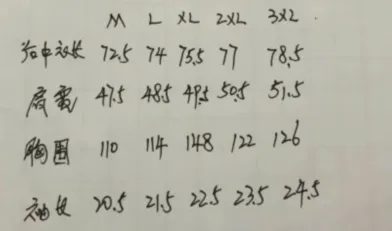 M L XL 2XL 3XL
后中衣长 72.5 74 75.5 77 78.5
肩宽 47.5 48.5 49.5 50.5 51.5
胸围 110 114 148 122 126
袖长 20.5 21.5 22.5 23.5 24.5